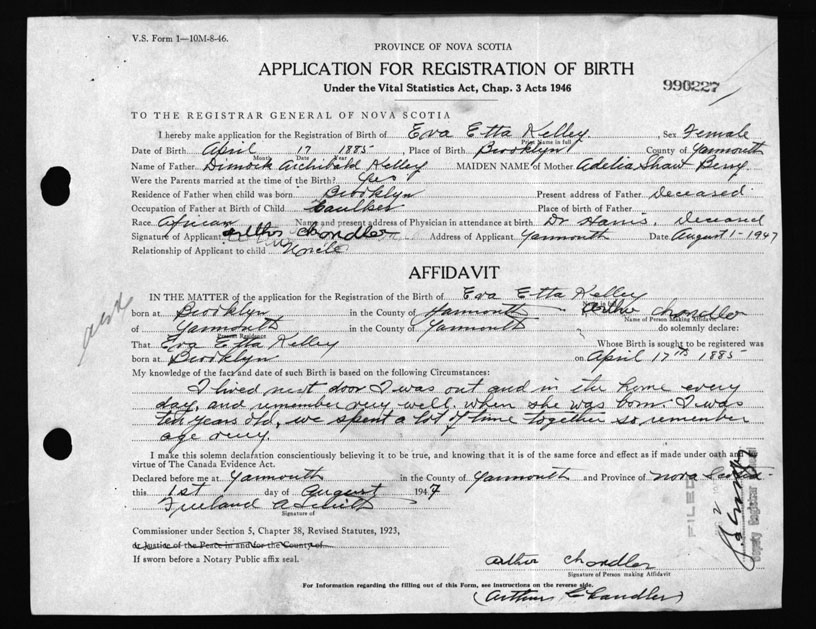 V.S. Form 1—10M-8-46.
PROVINCE OF NOVA SCOTIA
APPLICATION FOR REGISTRATION OF BIRTH
990227
Under the Vital Statistics Act, Chap. 3 Acts 1946
TO THE REGISTRAR GENERAL OF NOVA SCOTIA
I hereby make application for the Registration of Birth of Eva Etta Kelley, Sex Female
Print Name in full
Date of Birth April 17 1885, Place of Birth Brooklyn County of Yarmouth
Month Date Year
Name of Father Dimock Archibald Kelley MAIDEN NAME of Mother Adelia Shaw Berry
Were the Parents married at the time of the Birth? Yes
Residence of Father when child was born Brooklyn Present address of Father Deceased
Occupation of Father at Birth of Child Caulker Place of birth of Father
Race African Name and present address of Physician in attendance at birth Dr Harris, Deceased
Signature of Applicant Arthor Chandler Address of Applicant Yarmouth Date August 1-1947
Relationship of Applicant to child Uncle
AFFIDAVIT
IN THE MATTER of the application for the Registration of the Birth of Eva Etta Kelley
Name in full
born at Brooklyn in the County of Yarmouth Arthor Chandler
Name of Person Making Affidavit
of Yarmouth in the County of Yarmouth do solemnly declare:
Present Residence
That Eva Etta Kelley Whose Birth is sought to be registered was
born at Brooklyn on April 17th 1885
My knowledge of the fact and date of such Birth is based on the following Circumstances:
I lived next door I was out and in the home every
day, and remember very well when she was born. I was
ten years old, we spent a lot of time together so remember
age very.
I make this solemn declaration conscientiously believing it to be true, and knowing that it is of the same force and effect as if made under oath and
virtue of The Canada Evidence Act.
Declared before me at Yarmouth in the County of Yarmouth and Province of Nova Scotia
this 1st day of August 1947
Freeland A
Signature of
Commissioner under Section 5, Chapter 38, Revised Statutes, 1923,
or Justice of the Peace in and for the County of
If sworn before a Notary Public affix seal.
Arthor Chandler
Signature of Person making Affidavit
For Information regarding the filling out of this Form, see instructions on the reverse side.
(Arthur Chandler)
FILED
Deputy Registrar